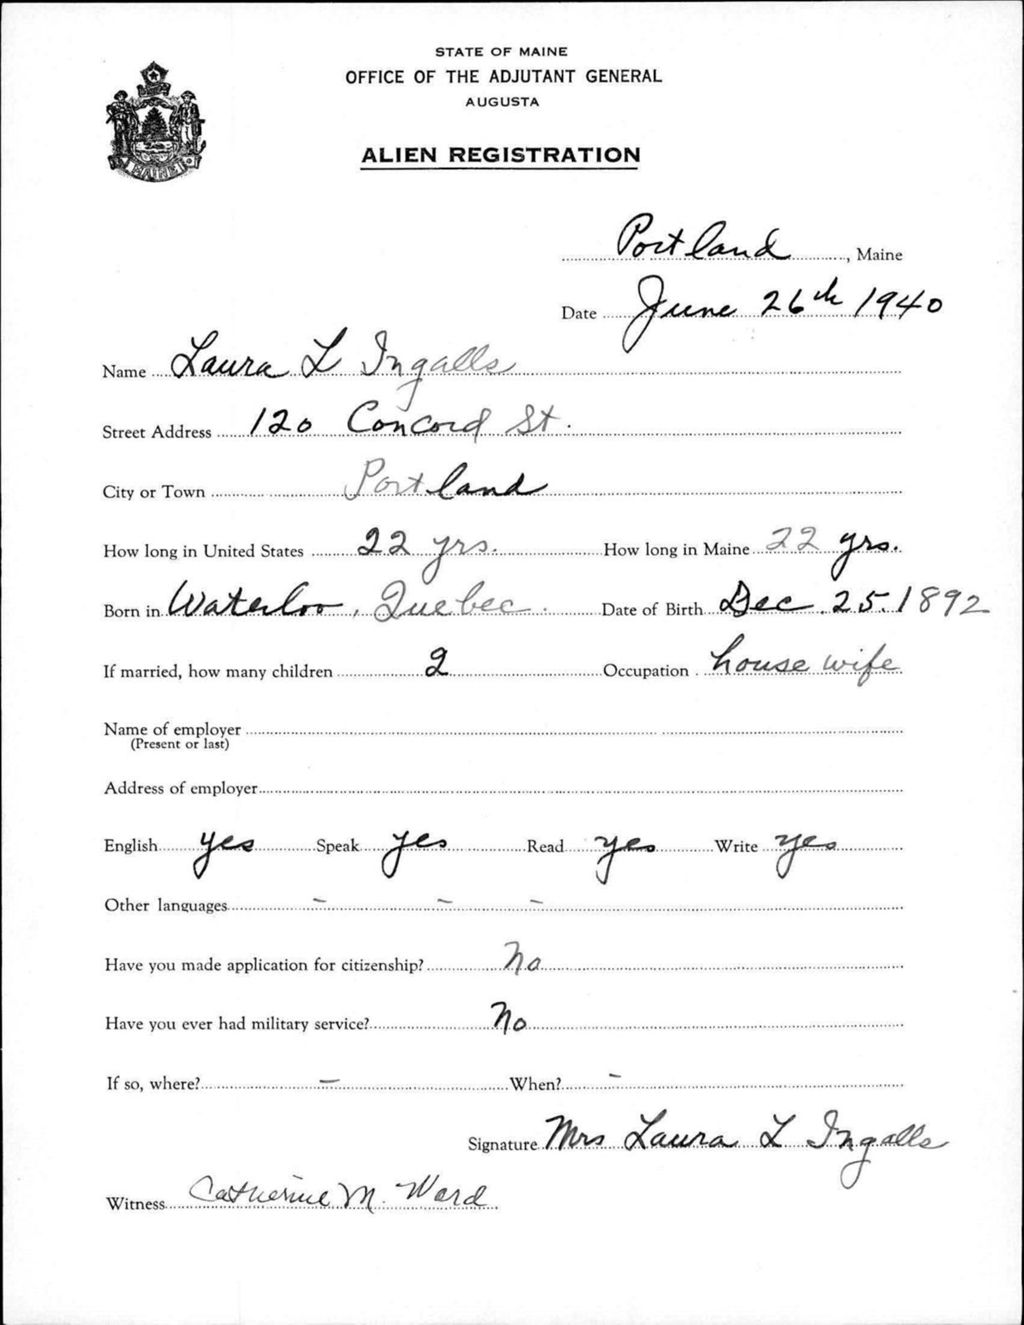 STATE OF MAINE
OFFICE OF THE ADJUTANT GENERAL
AUGUSTA
ALIEN REGISTRATION
MAINE
Portland, Maine
Date June 26th 1940
Name Laura L Ingalls
Street Address 120 Concord St.
City or Town Portland
How long in United States 22 yrs. How long in Maine 22 yrs.
Born in Waterloo, Quebec. Date of Birth Dec. 25. 1892
If married, how many children 2 Occupation housewife
Name of employer
(Present or last)
Address of employer
English yes Speak yes Read yes Write yes
Other languages - - -
Have you made application for citizenship? No
Have you ever had military service? No
If so, where? - When? -
Signature Mrs Laura L Ingalls
Witness Catherine M. Ward